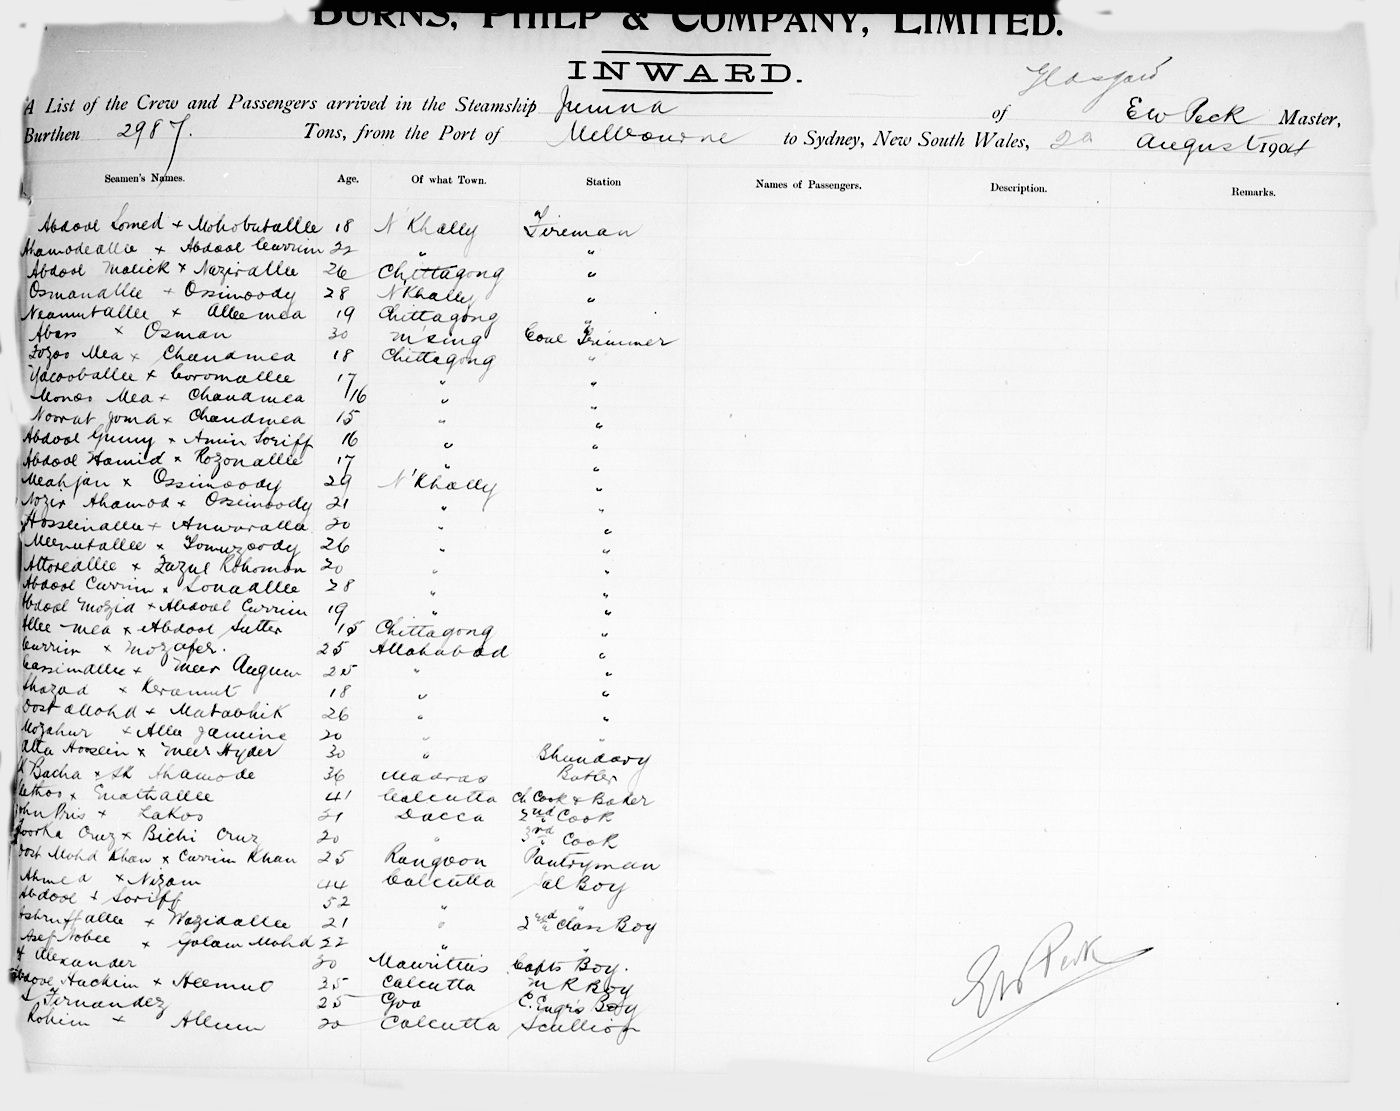 BURNS, PHILP & COMPANY, LIMITED.
INWARD.
A List of the Crew and Passengers arrived in the Steamship Jumna of Glasgow E W Peck Master,
Burthen 2987. Tons, from the Port of Melbourne to Sydney, New South Wales, August 1904
Seamen's Names. Age. Of what Town. Station Names of Passengers. Description. Remarks.
Abdool Somed x Mohobutallee 18 N'Khally Fireman
Ahamodeallee x Abdool Currim 22 " "
Abdool Malick x Nazirallee 26 Chittagong "
Osmanallee x Ossimoody 28 N'Khally "
Neamutallee x Alleemea 19 Chittagong "
Abass x Osman 30 M'sing Coal Trimmer
Fozoo Mea x Chandmea 18 Chittagong "
Yacooballee x Coromallee 17 " "
Monoo Mea x Chandmea 16 " "
Noorut Joma x Chandmea 15 " "
Abdool Gunny x Amin Soriff 16 " "
Abdool Hamid x Rozonallee 17 " "
Meahjan x Ossimoody 29 N'Khally "
Nozir Ahamod x Ossimoody 21 " "
Hosseinallee x Anwaralla 20 " "
Meenutallee x Tomuzoody 26 " "
Attoreallee x Fazul Rohoman 20 " "
Abdool Currim x Sonaallee 28 " "
Abdool Mozid x Abdool Currim 19 " "
Allee Mea x Abdool Sutter 15 Chittagong "
Currim x Mozafer. 25 Allahabad "
Cassimallee x Meer Augun 25 " "
Shazad x Keramut 18 " "
Dost Mohd x Matabhik 26 " "
Mozahur x Allee Jamine 20 " "
Atta Hossein x Meer Hyder 30 " Bhundary
Sk Bacha x Sk Ahamode 36 Madras Butler
x Enathallee 41 Calcutta Ch Cook & Baker
John Pris x Lakos 21 Dacca 2nd Cook
Cruz x Bichi Cruz 20 " 3rd Cook
Dost Mohd Khan x Currim Khan 25 Rangoon Pantryman
Ahmed x Nizam 44 Calcutta Sal Boy
Abdool x Soriff 52 " "
Ashruffallee x Wazidallee 21 " 2nd Class Boy
Asef Nobee x Golam Mohd 22 " "
Alexander 30 Mauritius Capts Boy.
Abdool Hachim x Heemut 35 Calcutta M R Boy
S Fernandez 25 Goa C. Engrs Boy
Rohim x Allum 20 Calcutta Scullion
E W Peck